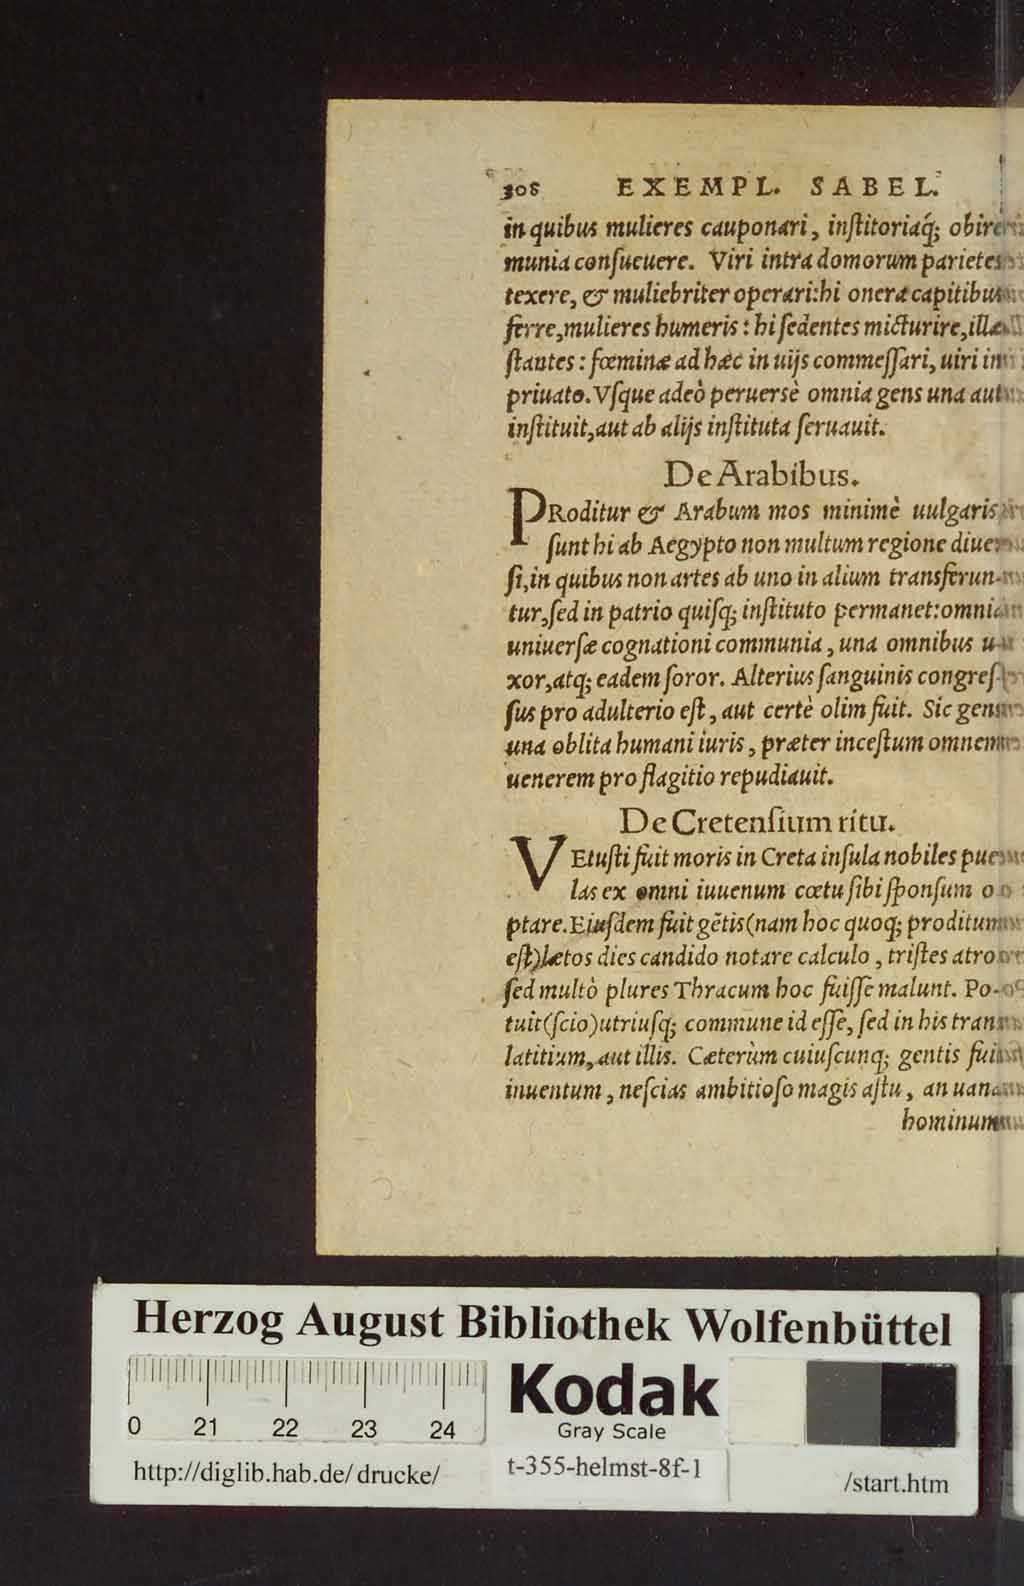 308 EXEMPL. SABEL.
in quibus mulieres cauponari, inſtitoriaq́; obire
munia conſueuere. Viri intra domorum parietes
texere, & muliebriter operari:hi onera capitibus
ferre,mulieres humeris : hi ſedentes micturire,illæ
ſtantes : fœminæ ad hæc in uijs commeſſari, uiri in
priuato. Vſque adeò peruersè omnia gens una aut
inſtituit,aut ab alijs inſtituta ſeruauit.
De Arabibus.
PRoditur & Arabum mos minimè uulgaris
ſunt hi ab Aegypto non multum regione diuer
ſi,in quibus non artes ab uno in alium transferun-
tur,ſed in patrio quiſq; inſtituto permanet:omnia
uniuerſæ cognationi communia, una omnibus u-
xor,atq; eadem ſoror. Alterius ſanguinis congreſ-
ſus pro adulterio eſt, aut certè olim fuit. Sic gens
una oblita humani iuris, præter inceſtum omnem
uenerem pro flagitio repudiauit.
De Cretenſium ritu.
VEtuſti fuit moris in Creta inſula nobiles puel
las ex omni iuuenum cœtu ſibi ſponſum o
ptare. Eiuſdem fuit gẽtis(nam hoc quoq; proditum
eſt)lætos dies candido notare calculo, triſtes atro
ſed multò plures Thracum hoc fuiſſe malunt. Po-
tuit(ſcio)utriuſq; commune id eſſe, ſed in his trans
latitium, aut illis. Cæterùm cuiuſcunq; gentis fuit
inuentum, neſcias ambitioſo magis aſtu, an uana
hominum
Herzog August Bibliothek Wolfenbüttel
0 21 22 23 24
Kodak
Gray Scale
http://diglib.hab.de/drucke/ t-355-helmst-8f-1 /start.htm